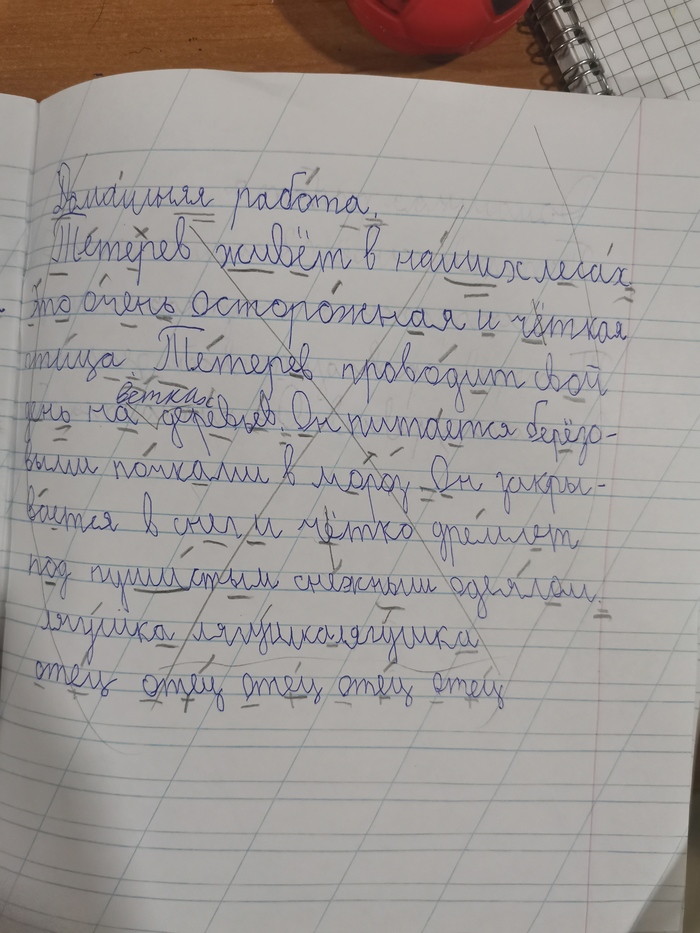 Домашняя работа.
Тетерев живёт в наших лесах.
Это очень осторожная и чёткая
птица Тетерев проводит свой
ветках
день на деревьев. Он питается берёзо-
выми почками в мороз Он закры-
вается в снег и чётко дремлет
под пушистым снежным одеялом.
лягушка лягушка лягушка
отец отец отец отец отец